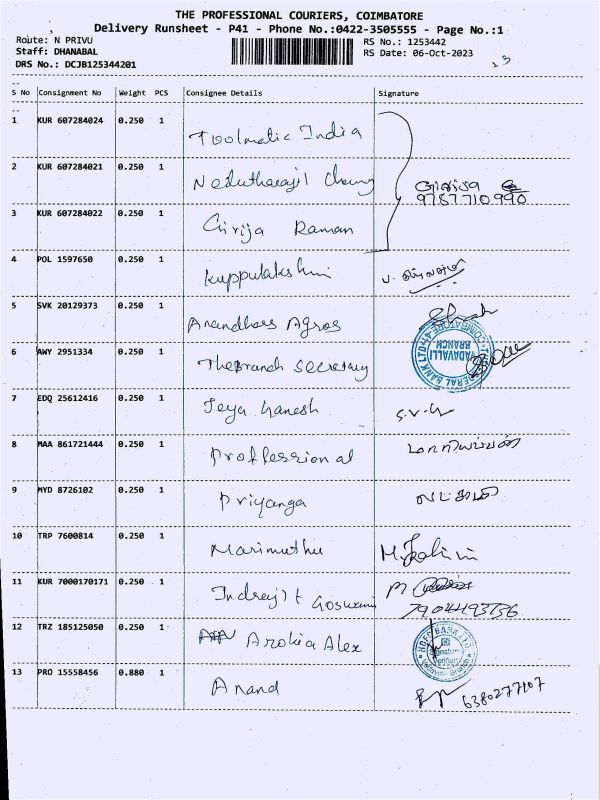 THE PROFESSIONAL COURIERS, COIMBATORE
Delivery Runsheet - P41 - Phone No.:0422-3505555 - Page No.:1
Route: N PRIVU
RS No.: 1253442
Staff: DHANABAL
RS Date: 06-Oct-2023
DRS No.: DCJB125344201
13
S No Consignment No Weight PCS Consignee Details Signature
1 KUR 607284024 0.250 1 Toolmatic India
2 KUR 607284021 0.250 1
Girija
9787710990
3 KUR 607284022 0.250 1 Girija Raman
4 POL 1597650 0.250 1 Kuppulakshmi
5 SVK 20129373 0.250 1 Anandhas Agros
6 AWY 2951334 0.250 1 The Branch Secretary
VADAVALLI
BRANCH
7 EDQ 25612416 0.250 1 Jeya Ganesh
8 MAA 861721444 0.250 1 Proffessional மாரியப்பன்
9 MYD 8726102 0.250 1 Priyanga
10 TRP 7600814 0.250 1 Marimuthu
11 KUR 7000170171 0.250 1 Indrajit Goswami
7904493736
12 TRZ 185125050 0.250 1 Arokia Alex
HDFC BANK LTD
13 PRO 15558456 0.880 1 Anand
6380277107